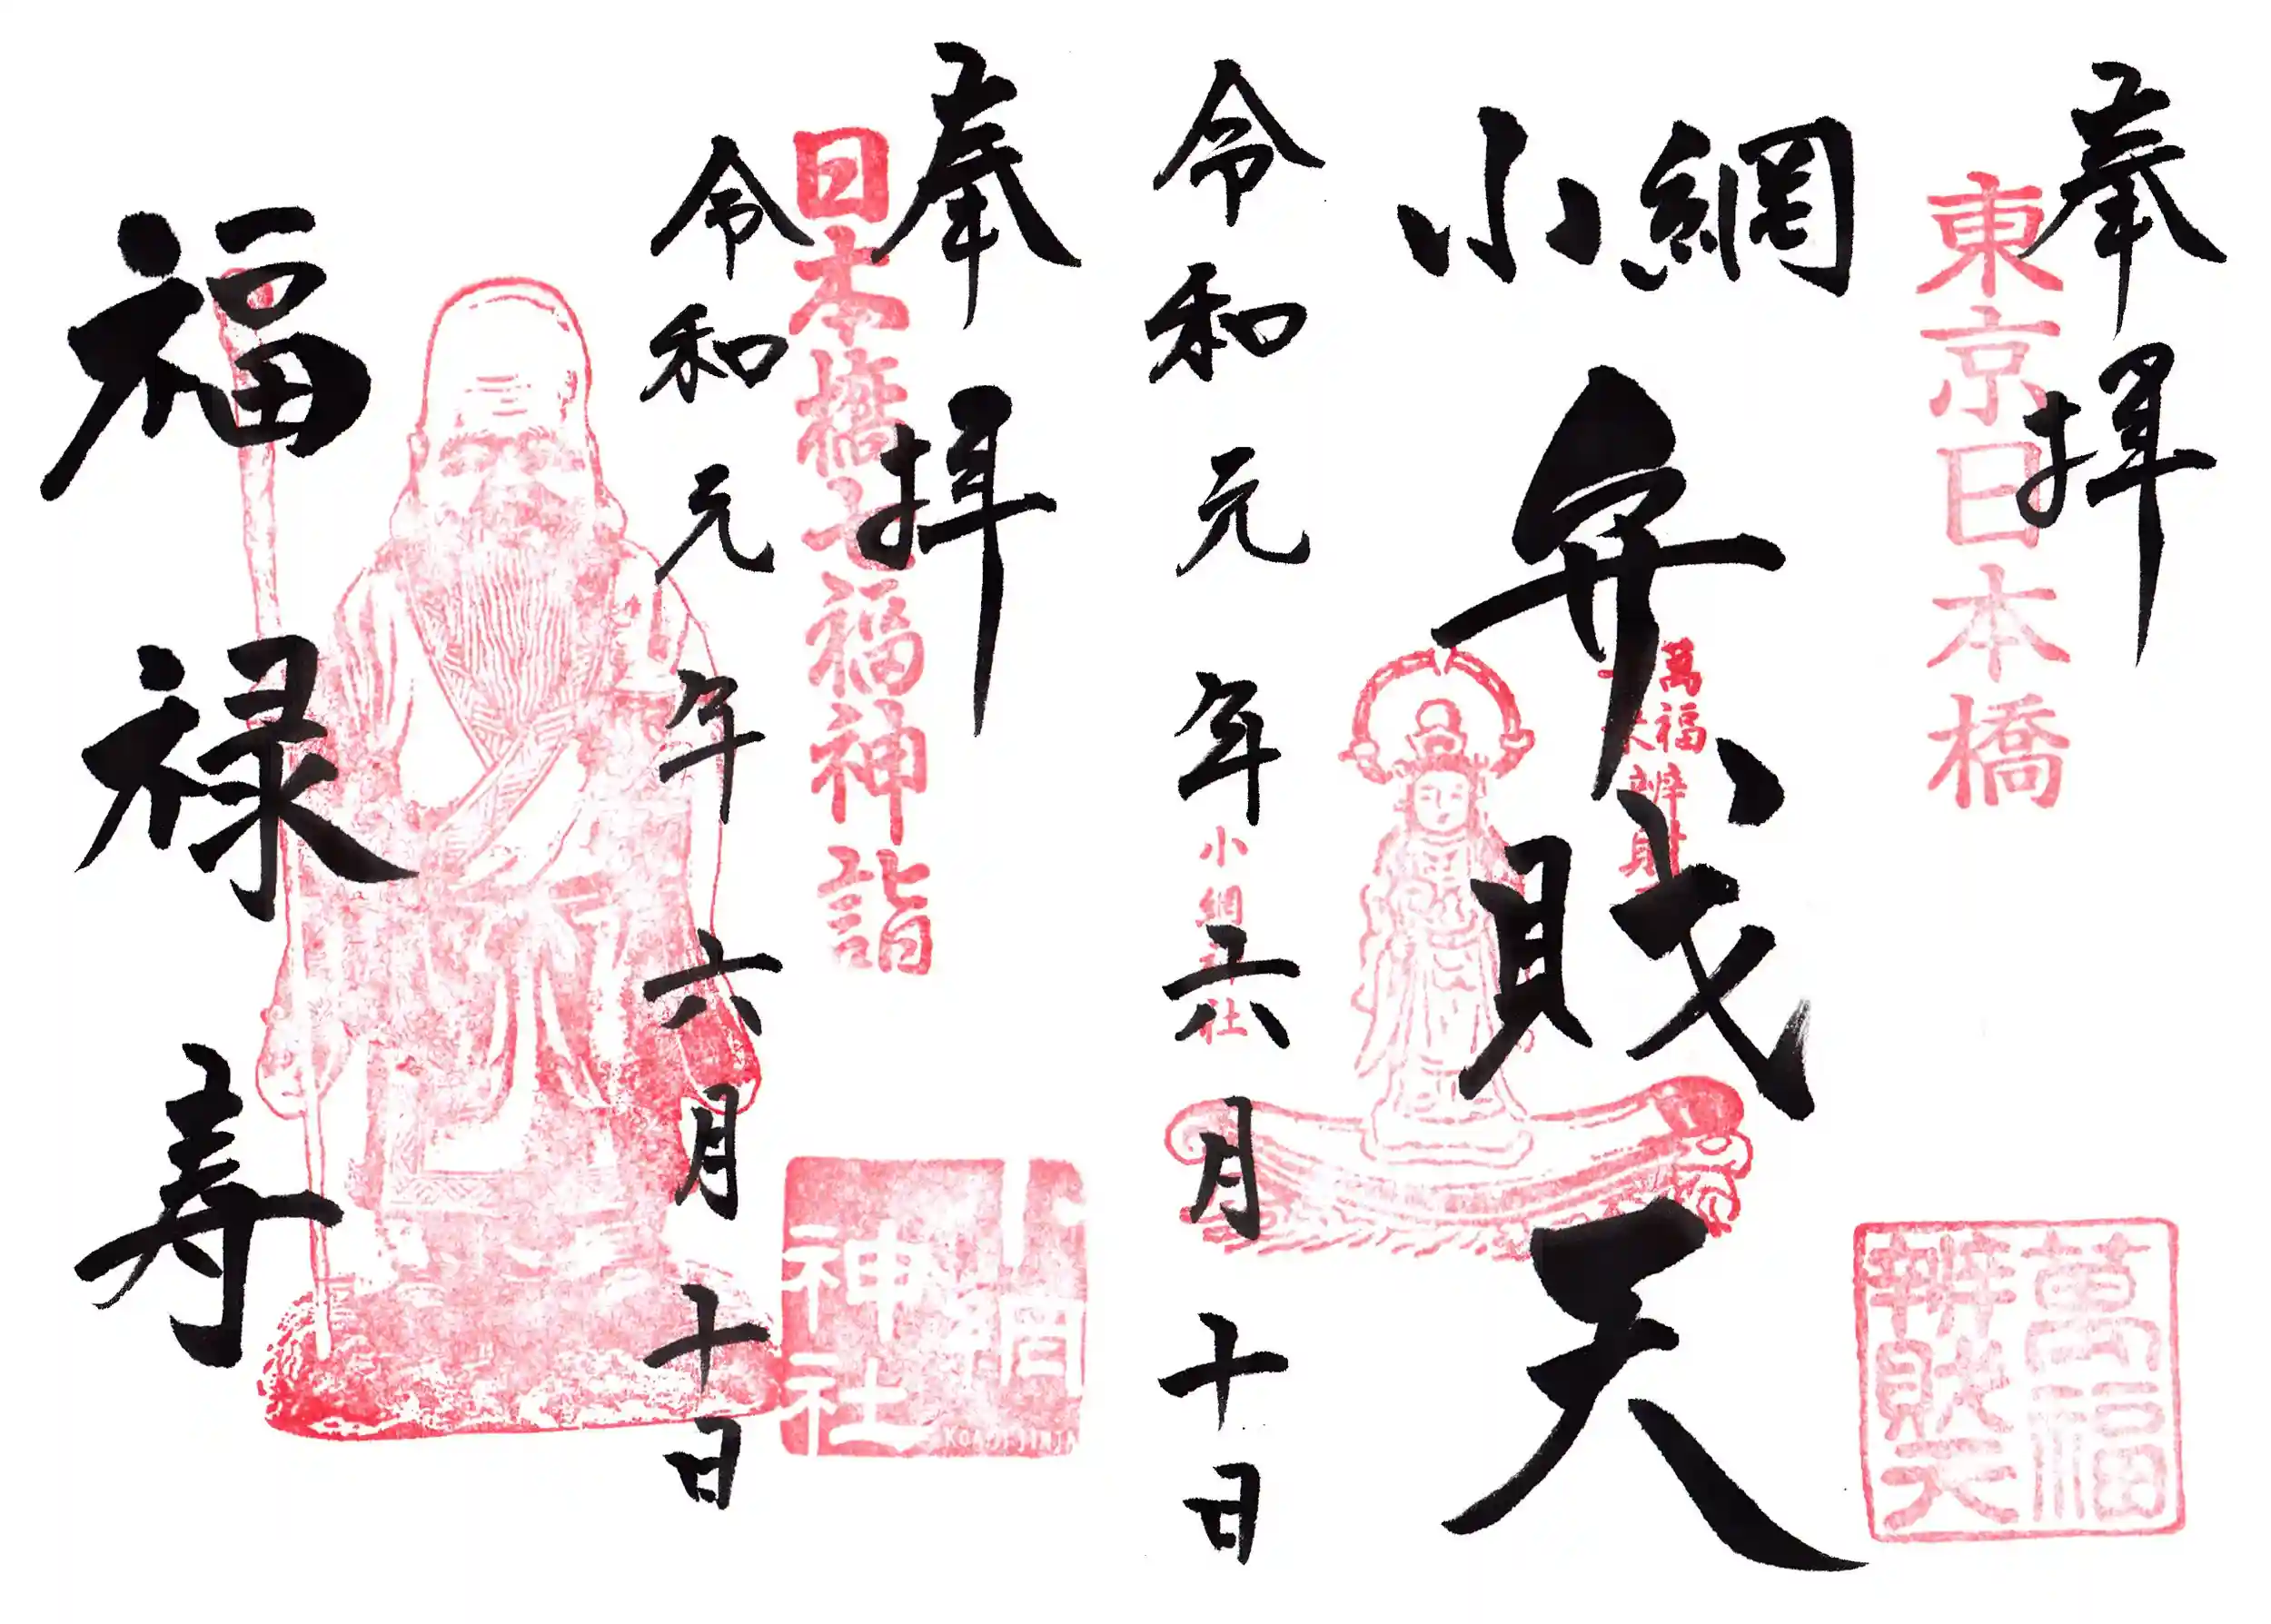 奉拝
東京日本橋
小網
弁財天
萬福
辨財
小網
社
萬福
辨財天
令和元年六月十日
奉拝
日本橋七福神詣
小網
神社
KOAMI JINJA
令和元年六月十日
福禄寿